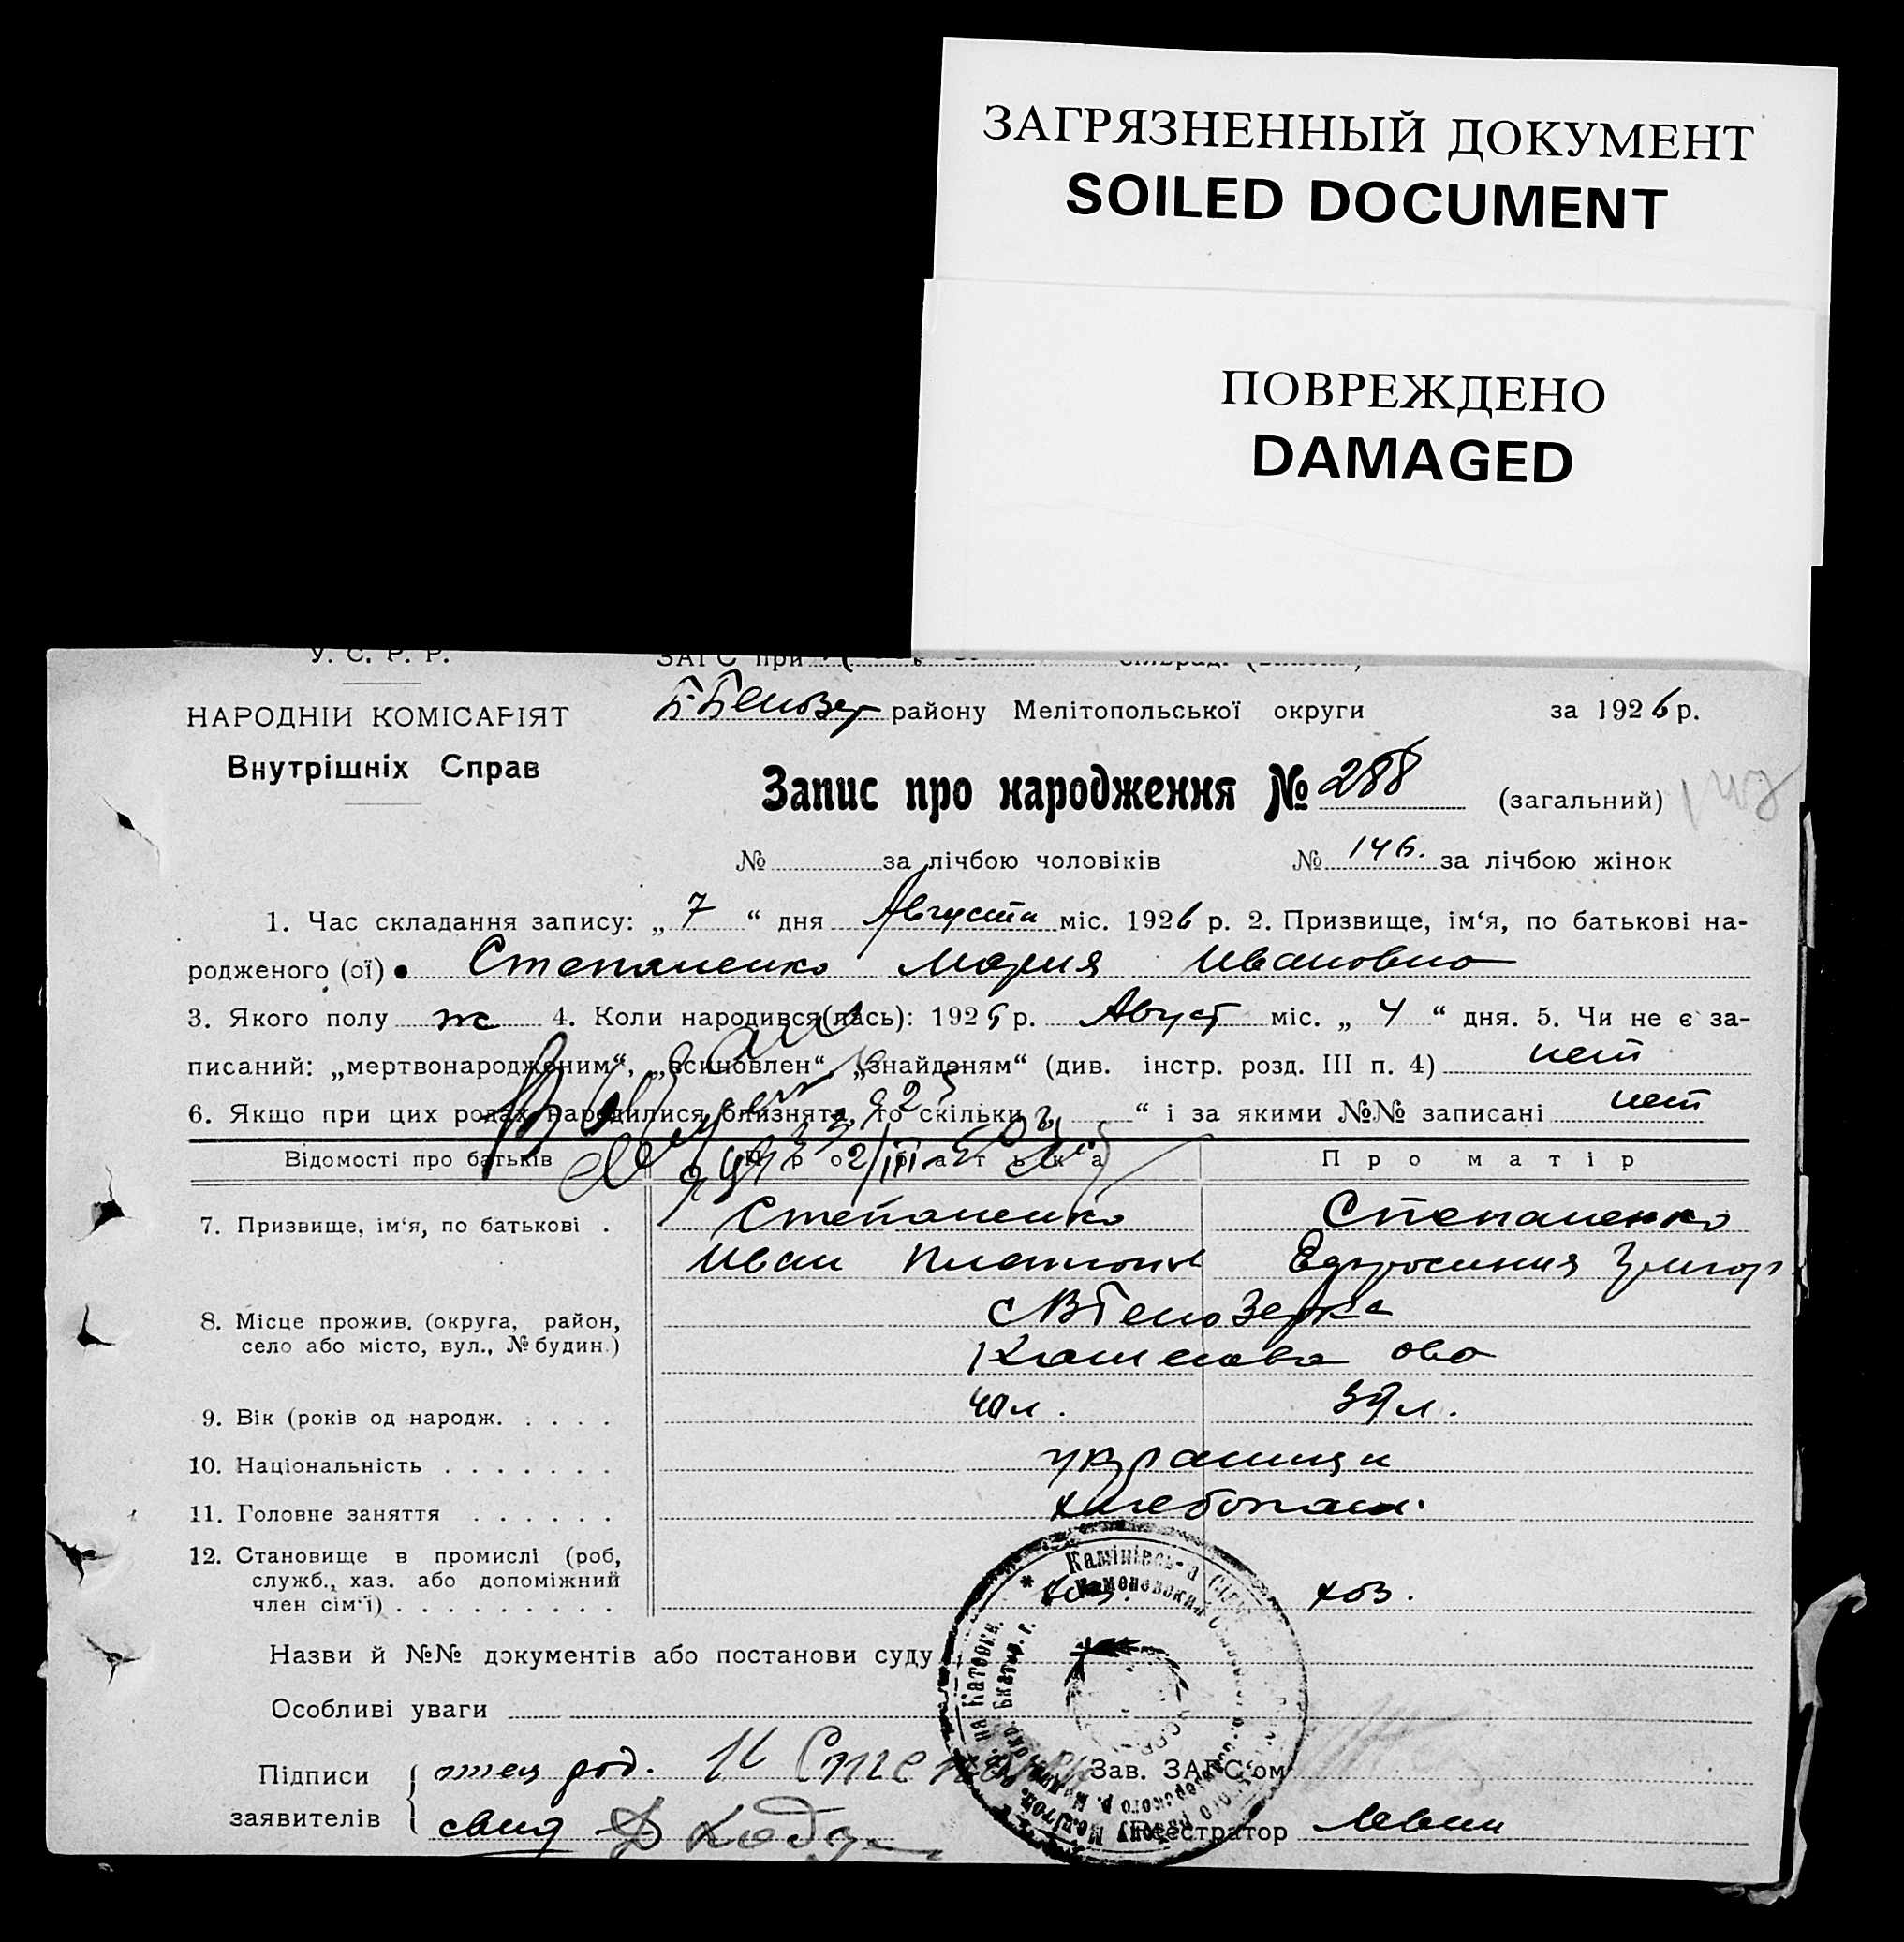 ЗАГРЯЗНЕННЫЙ ДОКУМЕНТ
SOILED DOCUMENT
ПОВРЕЖДЕНО
DAMAGED
У. С. Р. Р. ЗАГС при
НАРОДНІЙ КОМІСАРІЯТ району Мелітопольської округи за 1926 р.
Внутрішніх Справ
Запис про народження № 288 (загальний)
№ за лічбою чоловіків № 146. за лічбою жінок
1. Час складання запису: „ 7 “ дня Августа міс. 1926 р. 2. Призвище, ім‘я, по батькові на-
родженого (ої) Степаненко Мария Ивановна
3. Якого полу ж 4. Коли народився(лась): 192 р. Август міс. „ 4 “ дня. 5. Чи не є за-
писаний: „мертвонародженим“, „всиновлен“, „знайденям“ (див. інстр. розд. III п. 4) нет
6. Якщо при цих родах народилися близнята, то скільки “ і за якими №№ записані нет
Відомості про батьків Про батька Про матір
7. Призвище, ім‘я, по батькові . Степаненко Степаненко
Иван Платонов Ефросиния Григор
8. Місце прожив. (округа, район,
село або місто, вул., № будин.)
9. Вік (років од народж. . . . . 40 л. 39 л.
10. Національність . . . . . . . украинцы
11. Головне заняття . . . . . . хлебопаш.
12. Становище в промислі (роб,
служб., хаз. або допоміжний
член сім‘ї) . . . . . . . . . хоз. хоз.
Назви й №№ документів або постанови суду
Особливі уваги
Підписи отец род. И Степан Зав. ЗАГС‘ом
заявителів свид Реєстратор Левин